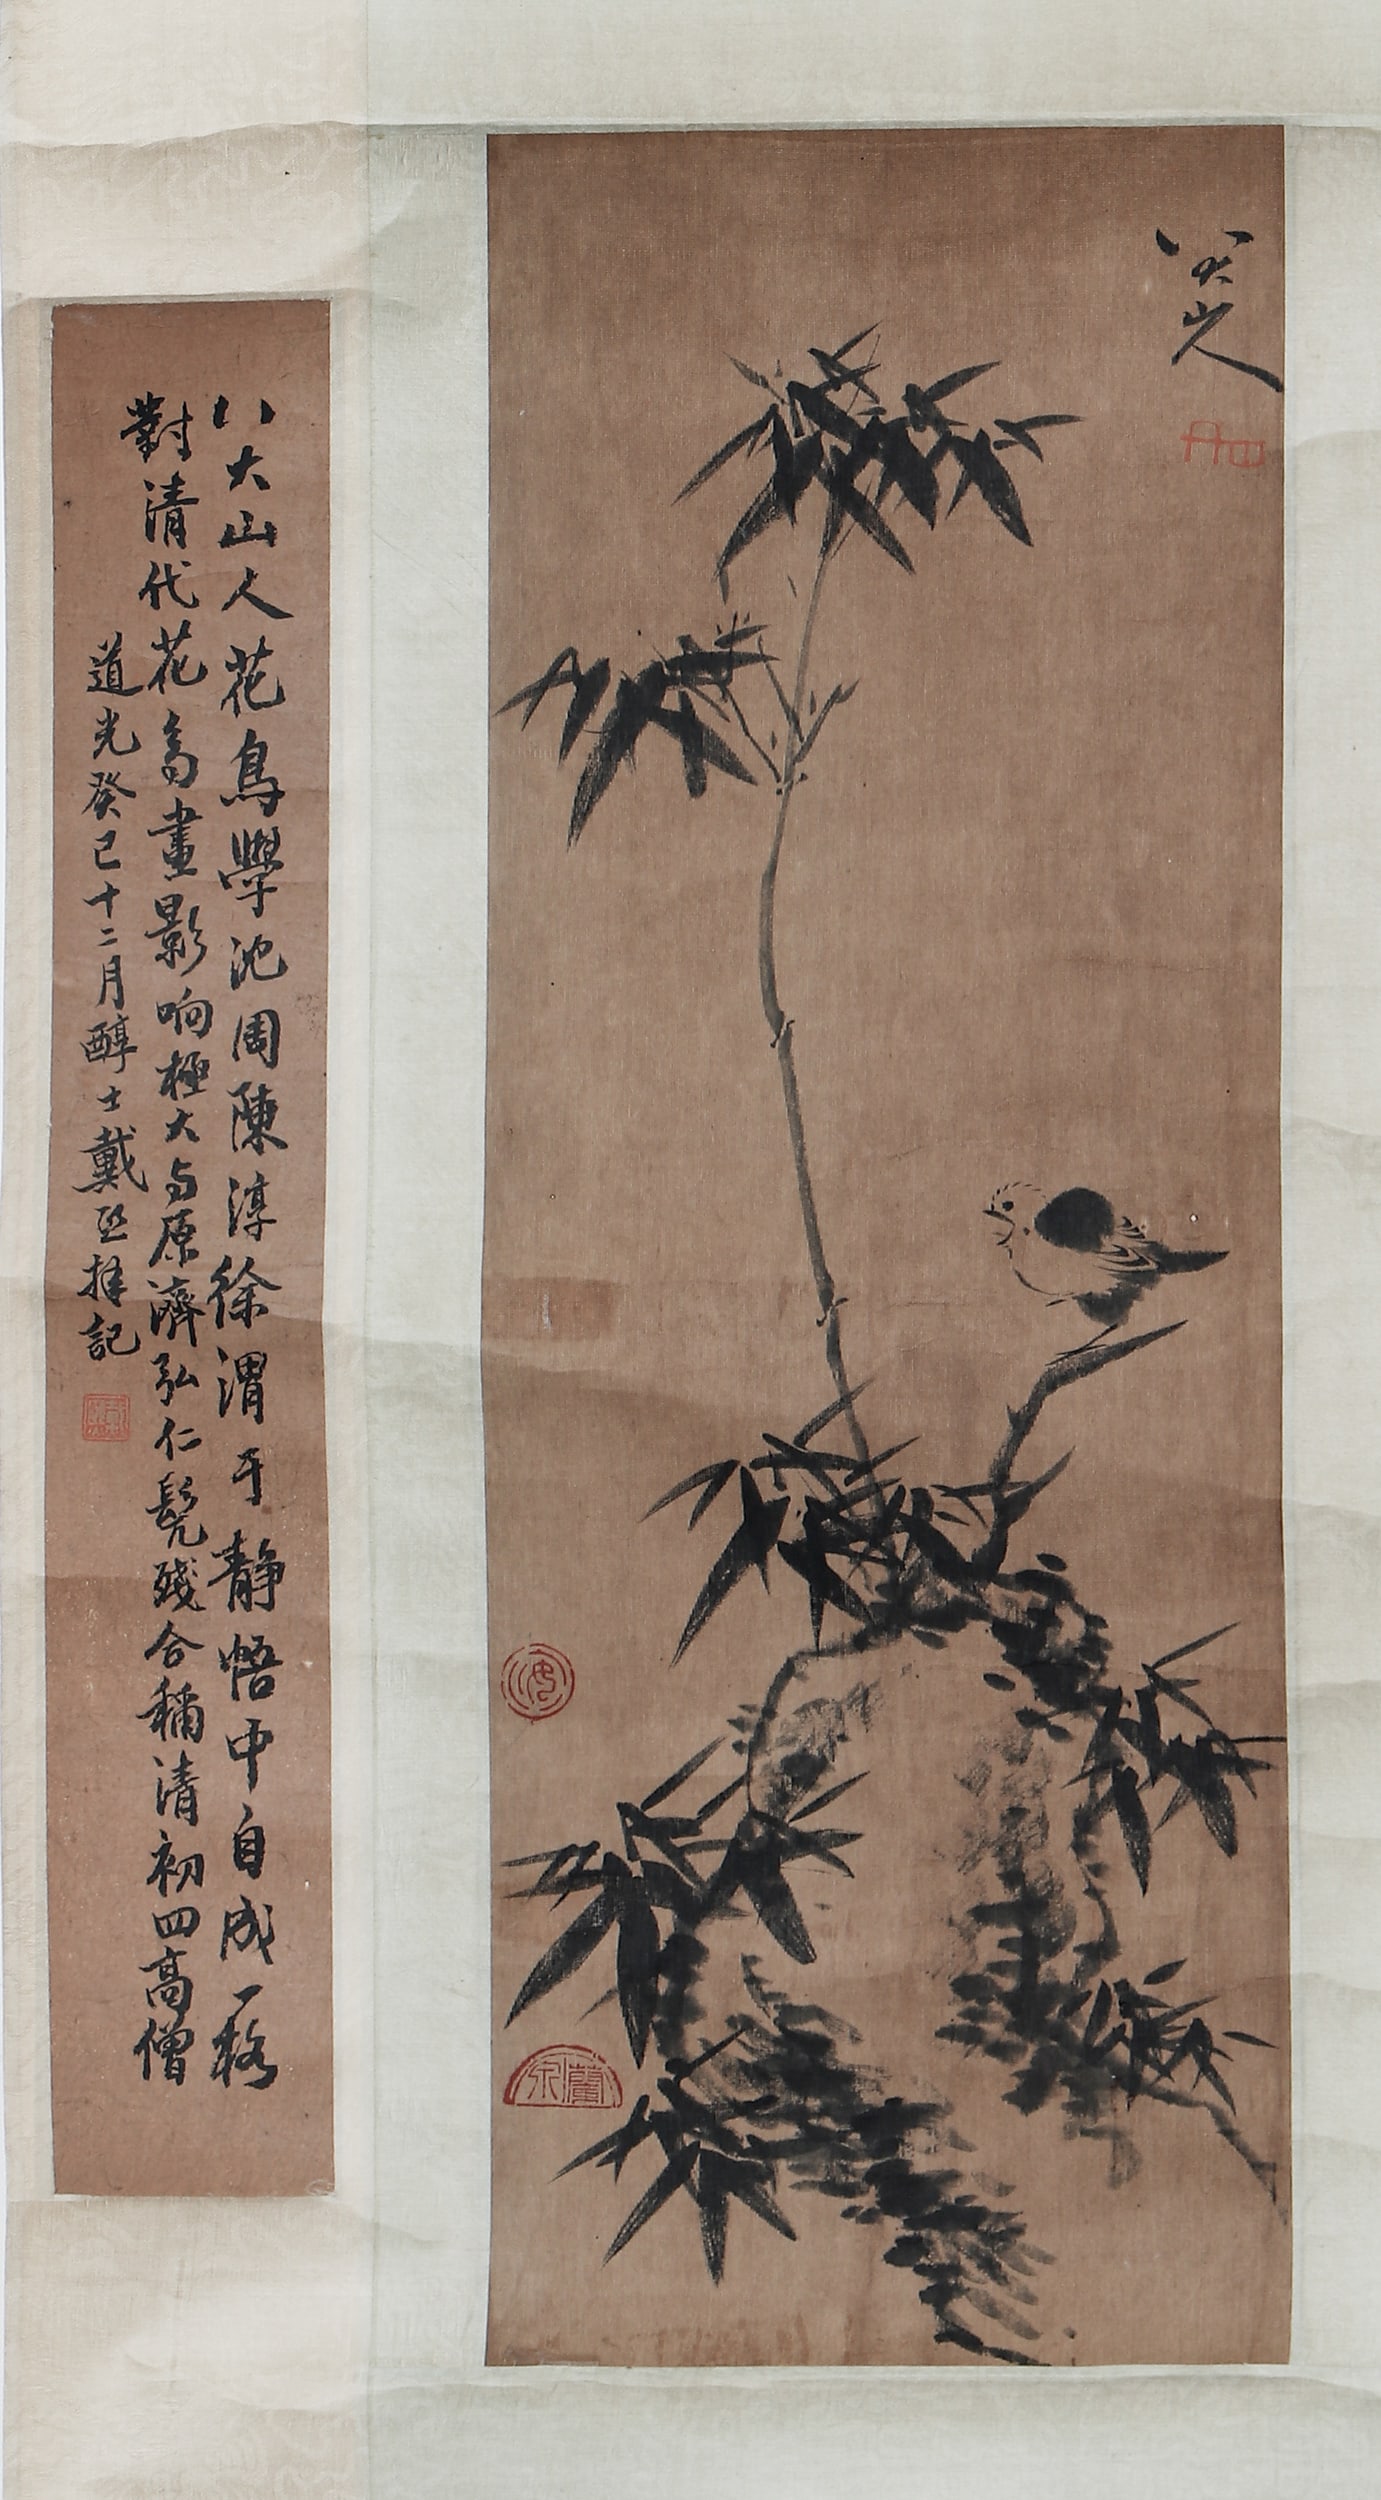 八大山人
八大山人花鳥學沈周陳淳徐渭于靜悟中自成一格
對清代花鳥畫影响極大与原濟弘仁髡殘合稱清初四高僧
道光癸已十二月醇士戴熙拜記